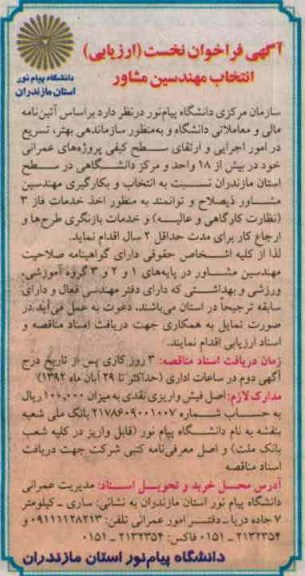 آگهی فراخوان نخست (ارزیابی)
انتخاب مهندسین مشاور
دانشگاه پیام نور
استان مازندران
سازمان مرکزی دانشگاه پیام‌نور درنظر دارد براساس آئین‌نامه
مالی و معاملاتی دانشگاه و به‌منظور سازماندهی بهتر، تسریع
در امور اجرایی و ارتقای سطح کیفی پروژه‌های عمرانی
خود در بیش از ۱۸ واحد و مرکز دانشگاهی در سطح
استان مازندران نسبت به انتخاب و بکارگیری مهندسین
مشاور ذیصلاح و توانمند به منظور اخذ خدمات فاز ۳
(نظارت کارگاهی و عالیه) و خدمات بازنگری طرح‌ها و
ارجاع کار برای مدت حداقل ۲ سال اقدام نماید.
لذا از کلیه اشخاص حقوقی دارای گواهینامه صلاحیت
مهندسین مشاور در پایه‌های ۱ و ۲ و ۳ گروه آموزشی،
ورزشی و بهداشتی که دارای دفتر مهندسی فعال و دارای
سابقه ترجیحاً در استان می‌باشند، دعوت به عمل می‌آید در
صورت تمایل به همکاری جهت دریافت اسناد مناقصه و
اسناد ارزیابی اقدام نمایند.
زمان دریافت اسناد مناقصه: ۳ روز کاری پس از تاریخ درج
آگهی دوم در ساعات اداری (حداکثر تا ۲۹ آبان ماه ۱۳۹۲)
مدارک لازم: اصل فیش واریزی نقدی به میزان ۱۰۰,۰۰۰ ریال
به حساب شماره ۲۱۷۸۶۰۹۰۰۱۰۰۷ بانک ملی شعبه
بنفشه به نام دانشگاه پیام نور (قابل واریز در کلیه شعب
بانک ملت) و اصل معرفی‌نامه کتبی شرکت جهت دریافت
اسناد مناقصه
آدرس محل خرید و تحویل اسناد: مدیریت عمرانی
دانشگاه پیام نور استان مازندران به نشانی: ساری - کیلومتر
۷ جاده دریا - دفتر امور عمرانی تلفن: ۰۹۱۱۱۱۲۸۲۱۳ و
۲۱۳۲۳۵۴ - ۰۱۵۱ فاکس: ۲۱۳۲۳۵۴ - ۰۱۵۱
دانشگاه پیام‌نور استان مازندران